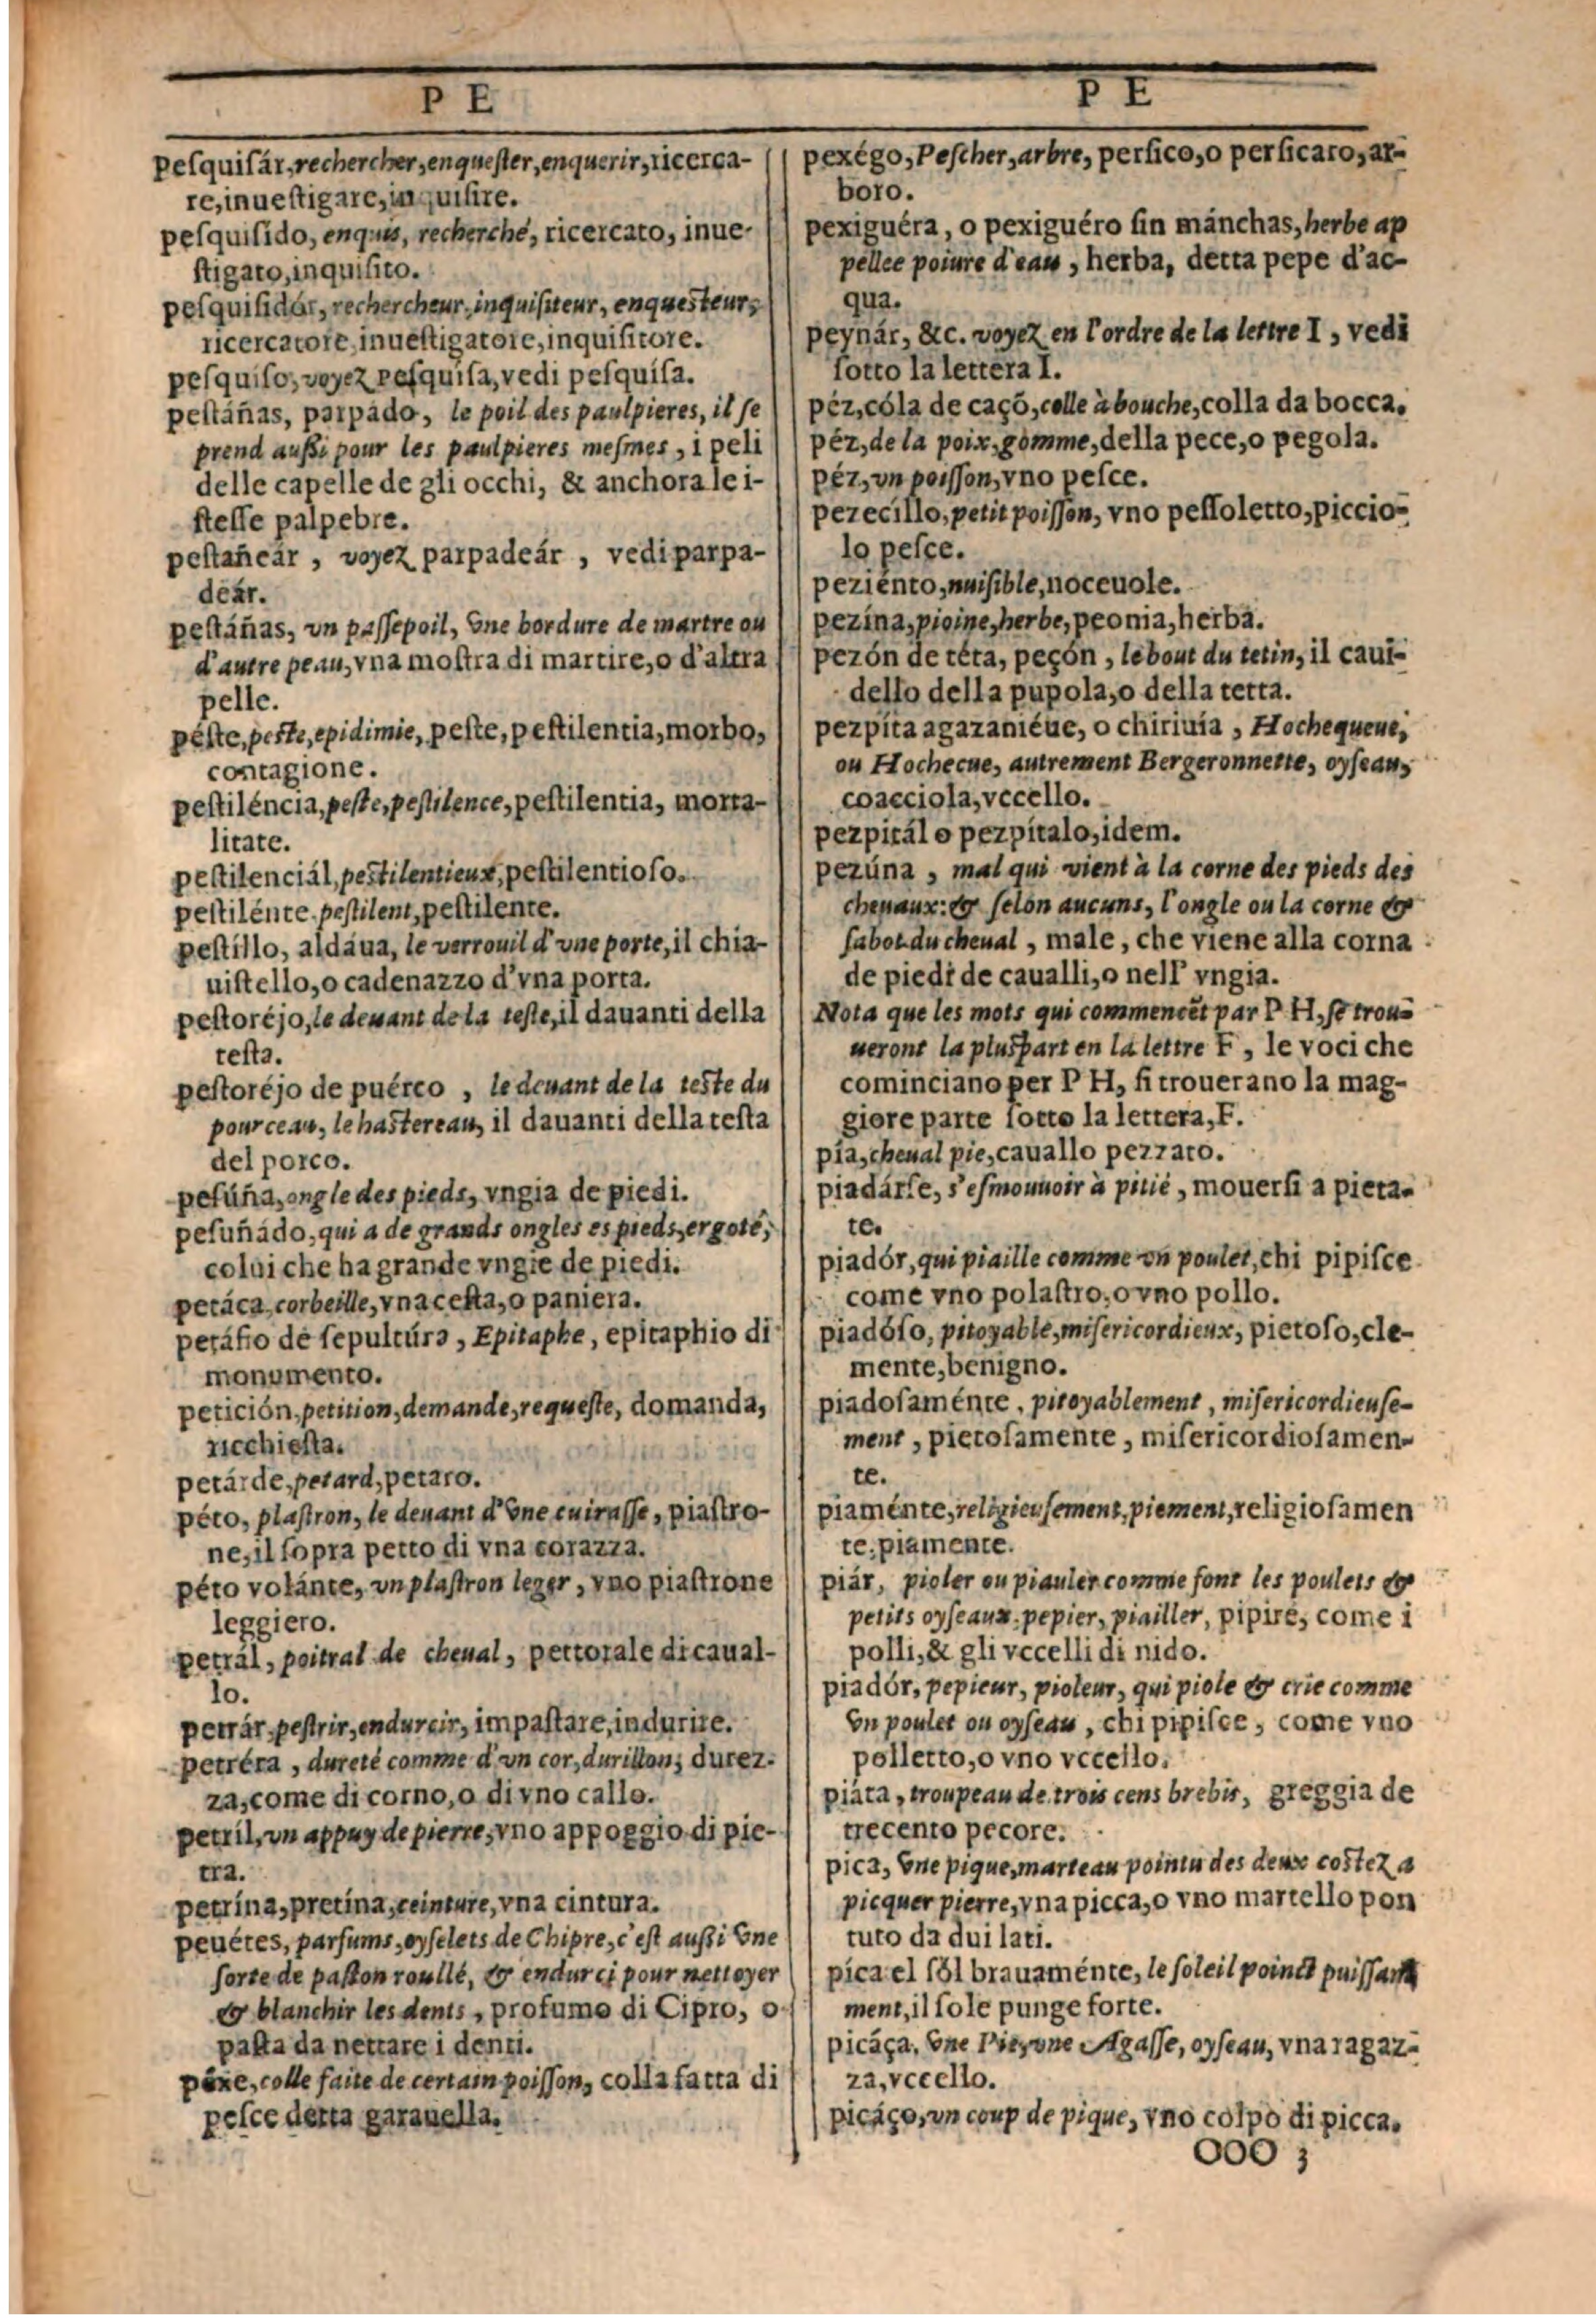 P E
peſquiſár, rechercher, enqueſter, enquerir, ricerca-
re, inueſtigare, inquiſire.
peſquiſido, enquis, recherché, ricercato, inue-
ſtigato, inquiſito.
peſquiſidór, rechercheur, inquiſiteur, enqueſteur,
ricercatore, inueſtigatore, inquiſitore.
peſquiſo, voyez peſquiſa, vedi peſquíſa.
peſtáñas, parpádo, le poil des paulpieres, il ſe
prend auſsi pour les paulpieres meſmes, i peli
delle capelle de gli occhi, & anchora le i-
ſteſſe palpebre.
peſtañeár, voyez parpadeár, vedi parpa-
deár.
peſtáñas, vn paſſepoil, vne bordure de martre ou
d'autre peau, vna moſtra di martire, o d'altra
pelle.
péſte, peſte, epidimie, peſte, peſtilentia, morbo,
contagione.
peſtiléncia, peſte, peſtilence, peſtilentia, morta-
litate.
peſtilenciál, peſtilentieux, peſtilentioſo.
peſtilénte, peſtilent, peſtilente.
peſtíllo, aldáua, le verrouil d'vne porte, il chia-
uiſtello, o cadenazzo d'vna porta.
peſtoréjo, le deuant de la teſte, il dauanti della
teſta.
peſtoréjo de puérco, le deuant de la teſte du
pourceau, le haſtereau, il dauanti della teſta
del porco.
peſúña, ongle des pieds, vngia de piedi.
peſuñádo, qui a de grands ongles es pieds, ergoté,
colui che ha grande vngie de piedi.
petáca, corbeille, vna ceſta, o paniera.
petáfio de ſepultúra, Epitaphe, epitaphio di
monumento.
petición, petition, demande, requeſte, domanda,
ricchieſta.
petárde, petard, petaro.
péto, plaſtron, le deuant d'vne cuiraſſe, piaſtro-
ne, il ſopra petto di vna corazza.
péto volánte, vn plaſtron leger, vno piaſtrone
leggiero.
petrál, poitral de cheual, pettorale di caual-
lo.
petrár, peſtrir, endurcir, impaſtare, indurire.
petréra, dureté comme d'vn cor, durillon, durez-
za, come di corno, o di vno callo.
petríl, vn appuy de pierre, vno appoggio di pie-
tra.
petrína, pretína, ceinture, vna cintura.
peuétes, parfums, oyſelets de Chipre, c'eſt auſsi vne
ſorte de paſton roullé, & endurci pour nettoyer
& blanchir les dents, profumo di Cipro, o
paſta da nettare i denti.
péxe, colle faite de certain poiſſon, colla fatta di
peſce detta garauella.
P E
pexégo, Peſcher, arbre, perſico, o perſicaro, ar-
boro.
pexiguéra, o pexiguéro ſin mánchas, herbe ap
pellee poiure d'eau, herba, detta pepe d'ac-
qua.
peynár, &c. voyez en l'ordre de la lettre I, vedi
ſotto la lettera I.
péz, cóla de caçõ, colle à bouche, colla da bocca.
péz, de la poix, gomme, della pece, o pegola.
péz, vn poiſſon, vno peſce.
pezecíllo, petit poiſſon, vno peſſoletto, piccio-
lo peſce.
peziénto, nuiſible, noceuole.
pezína, pioine, herbe, peonia, herba.
pezón de téta, peçón, le bout du tetin, il caui-
dello della pupola, o della tetta.
pezpíta agazaniéue, o chiriuía, Hochequeue,
ou Hochecue, autrement Bergeronnette, oyſeau,
coacciola, vccello.
pezpitál o pezpítalo, idem.
pezúna, mal qui vient à la corne des pieds des
cheuaux: & ſelon aucuns, l'ongle ou la corne &
ſabot du cheual, male, che viene alla corna
de piedi de caualli, o nell' vngia.
Nota que les mots qui commencẽt par P H, ſe trou-
ueront la pluſpart en la lettre F, le voci che
cominciano per P H, ſi trouerano la mag-
giore parte ſotto la lettera, F.
pía, cheual pie, cauallo pezzato.
piadárſe, s'eſmouuoir à pitié, mouerſi a pieta-
te.
piadór, qui piaille comme vn poulet, chi pipiſce
come vno polaſtro, o vno pollo.
piadóſo, pitoyable, miſericordieux, pietoſo, cle-
mente, benigno.
piadoſaménte, pitoyablement, miſericordieuſe-
ment, pietoſamente, miſericordioſamen-
te.
piaménte, religieuſement, piement, religioſamen
te, piamente.
piár, pioler ou piauler comme font les poulets &
petits oyſeaux, pepier, piailler, pipire, come i
polli, & gli vccelli di nido.
piadór, pepieur, pioleur, qui piole & crie comme
vn poulet ou oyſeau, chi pipiſce, come vno
polletto, o vno vccello.
piáta, troupeau de trois cens brebis, greggia de
trecento pecore.
pica, vne pique, marteau pointu des deux coſtez a
picquer pierre, vna picca, o vno martello pon
tuto da dui lati.
píca el ſól brauaménte, le ſoleil poinct puiſſam
ment, il ſole punge forte.
picáça, vne Pie, vne Agaſſe, oyſeau, vna ragaz-
za, vccello.
picáço, vn coup de pique, vno colpo di picca.
OOO 3